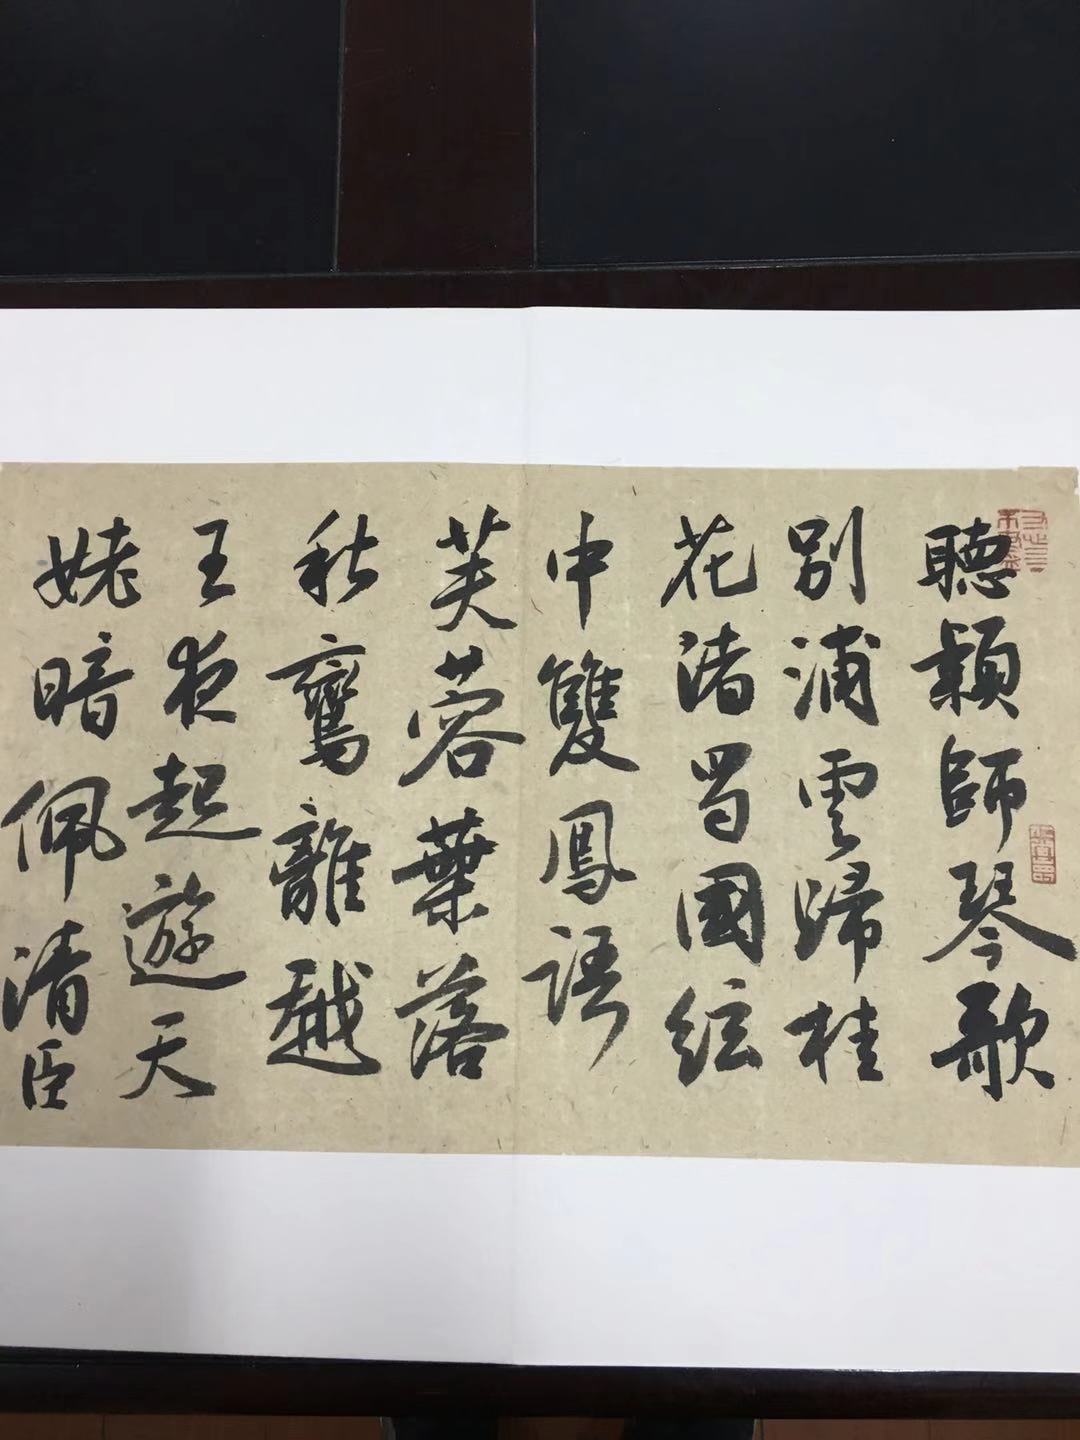 聽穎師琴歌
別浦雲歸桂
花渚蜀國絃
中雙鳳語
芙蓉葉落
秋鸞離越
王夜起遊天
姥暗佩清臣